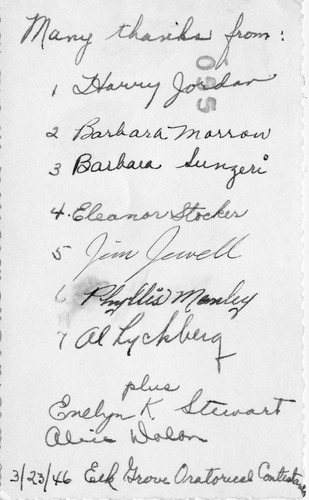 Many thanks from:
0555
1 Harry Jordan
2 Barbara Morrow
3 Barbara Sunzeri
4. Eleanor Stocker
5 Jim Jewell
6 Phyllis Manley
7 Al Lyckberg
plus
Evelyn K. Stewart
Alice Dolan
3/23/46 Elk Grove Oratorical Contestants